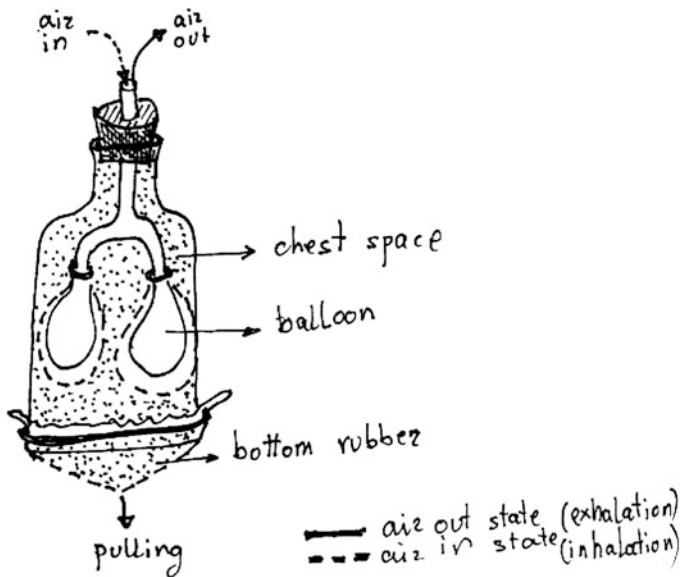 air
in
air
out
chest space
balloon
bottom rubber
pulling
air out state (exhalation)
air in state (inhalation)